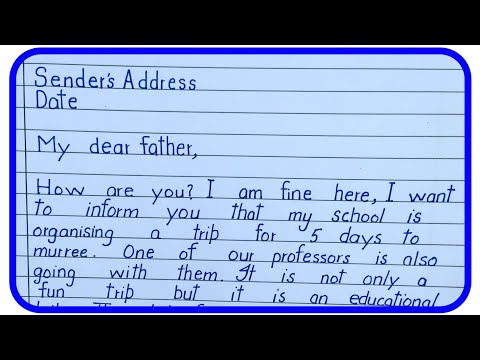 Sender's Address
Date
My dear father,
How are you? I am fine here, I want
to inform you that my school is
organising a trip for 5 days to
murree. One of our professors is also
going with them. It is not only a
fun trip but it is an educational